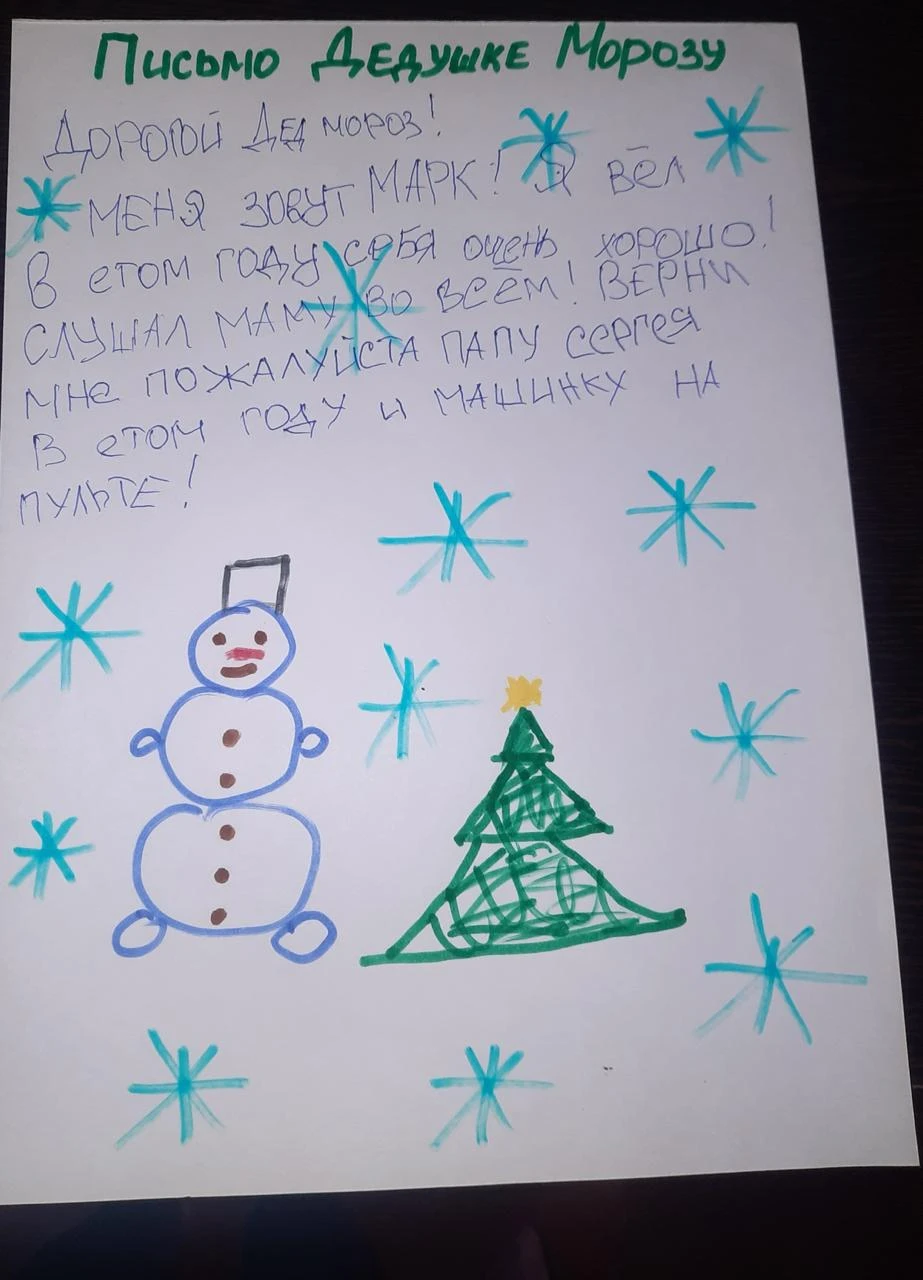 Письмо Дедушке Морозу
Дорогой Дед мороз!
Меня зовут Марк! Я вёл
В етом году себя очень хорошо!
Слушал маму во всём! Верни
мне пожалуйста папу Сергея
В етом году и машинку на
пульте!